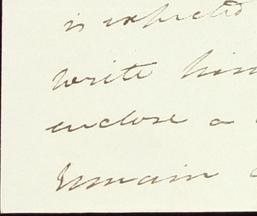 is expected
write him
enclose a
remain